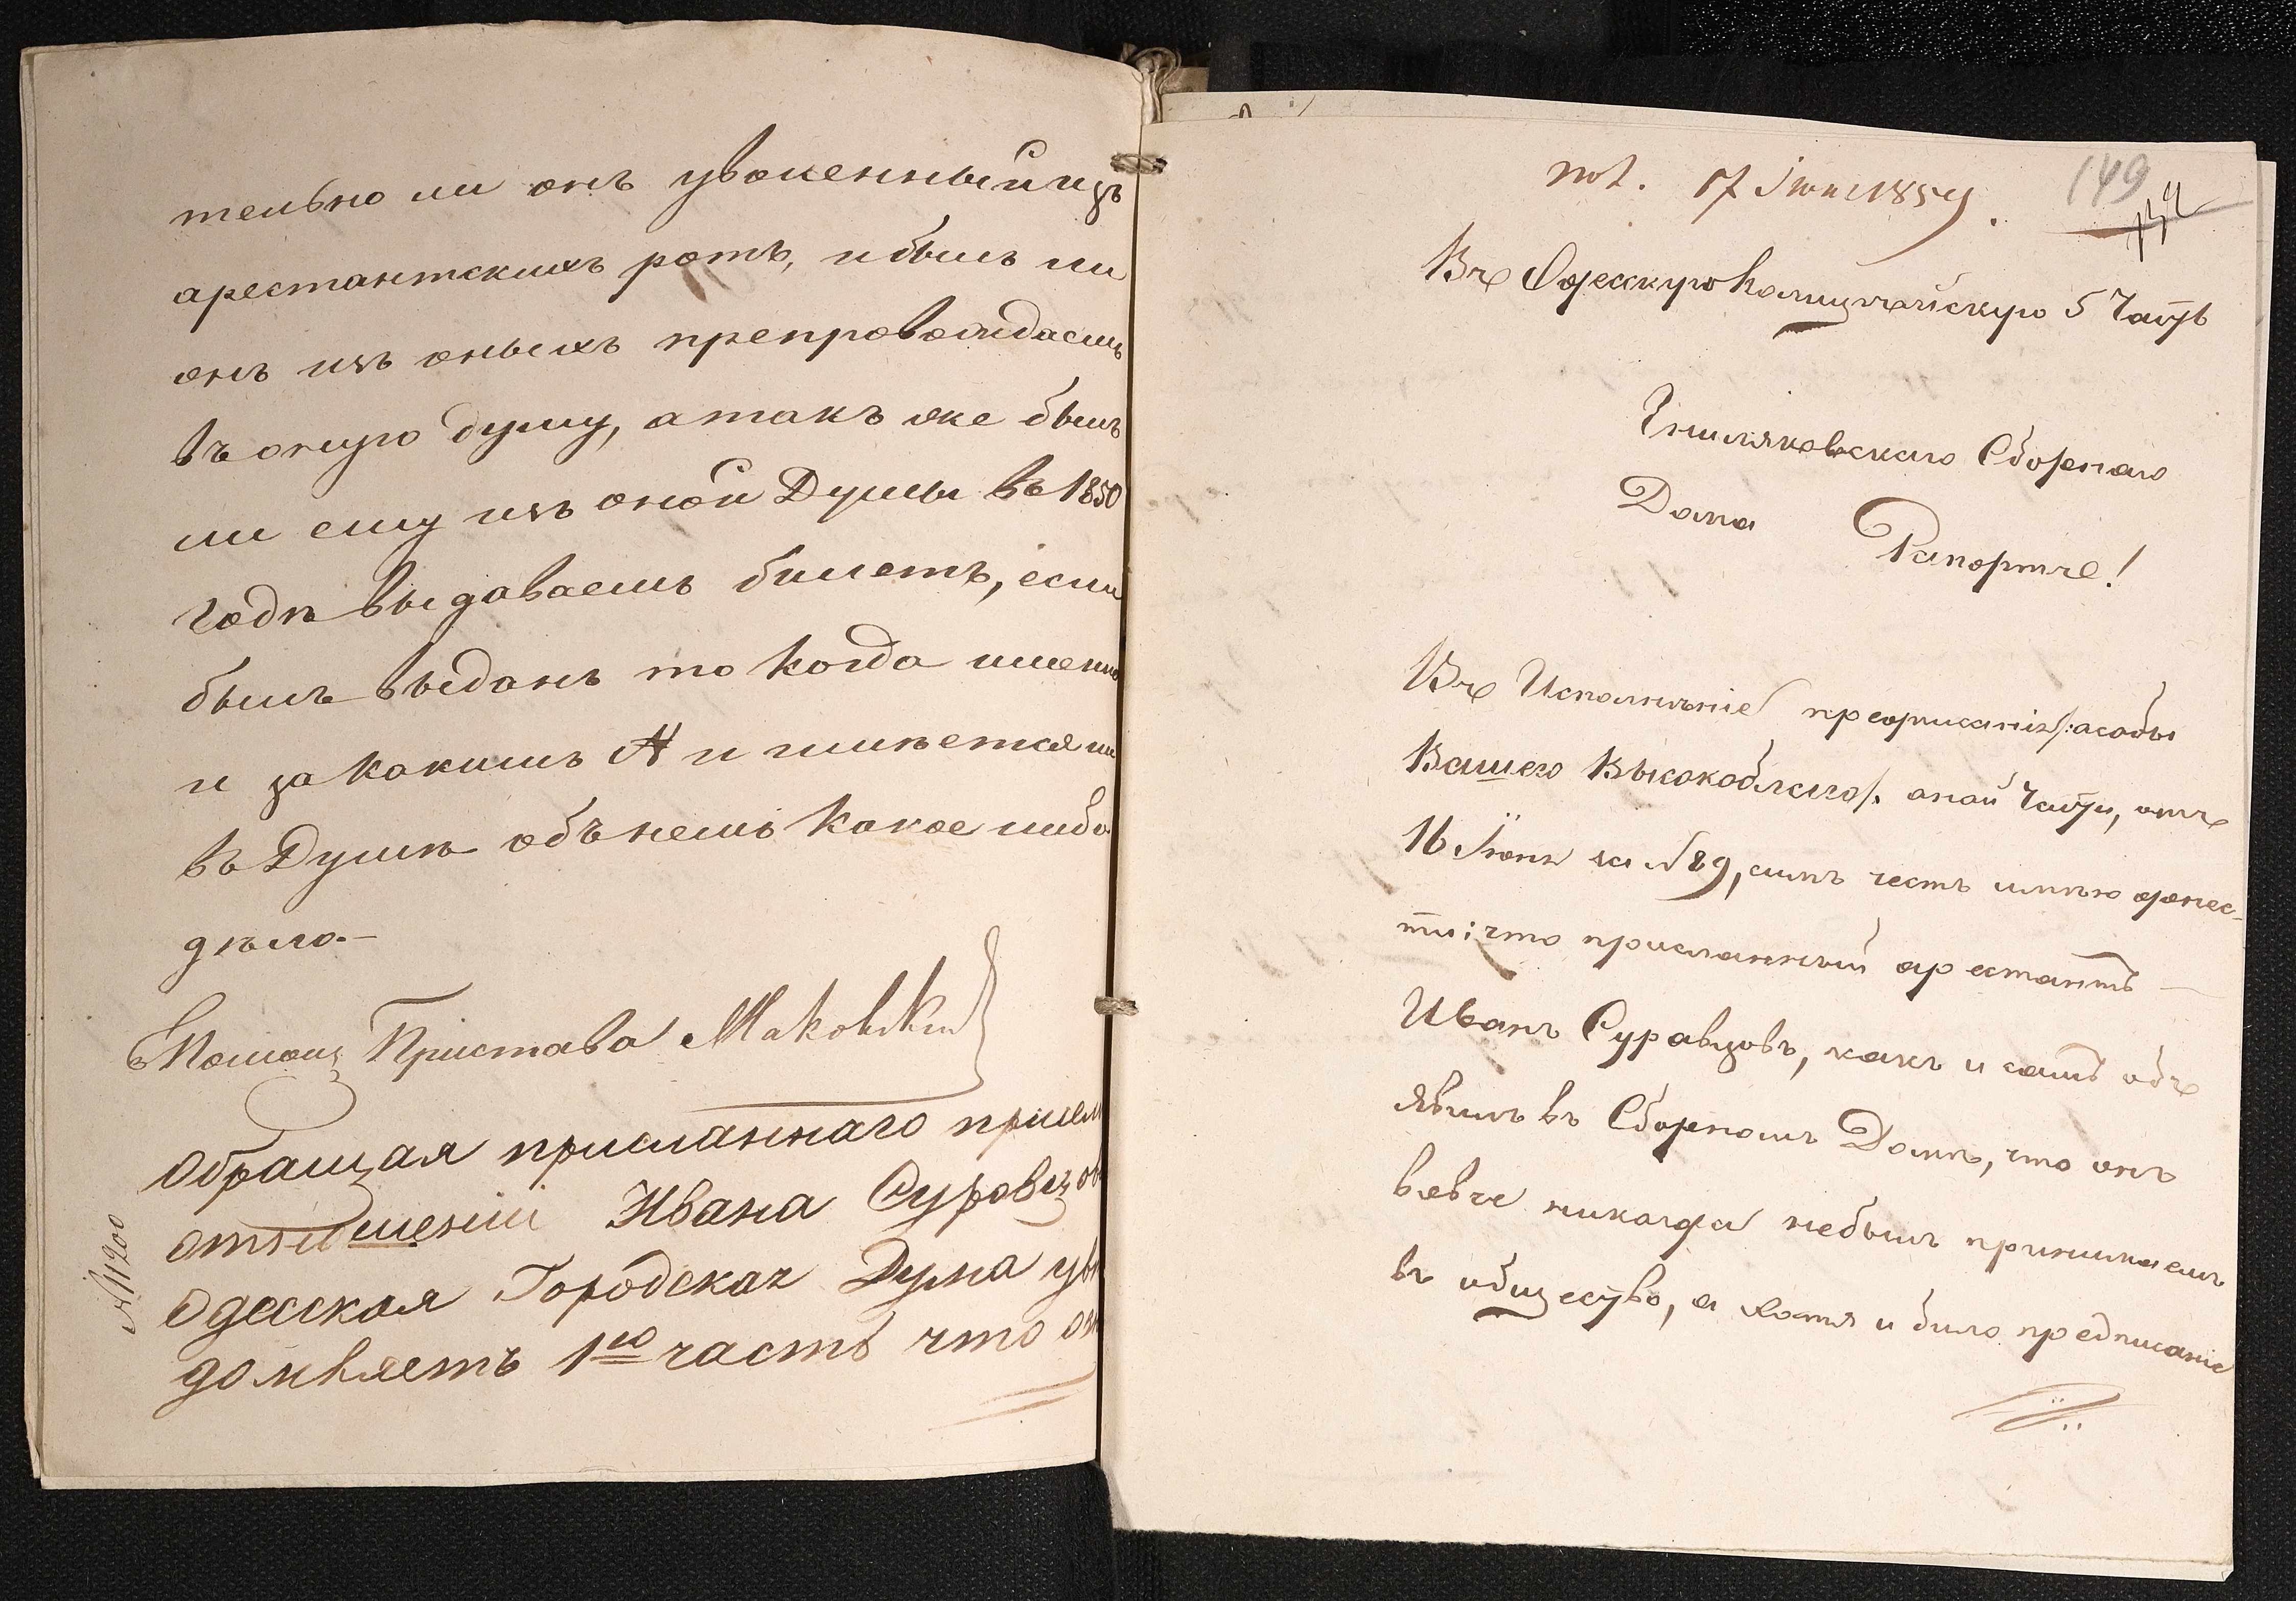 тельно ли онъ уволенный изъ
арестантскихъ ротъ, и былъ ли
онъ изъ оныхъ препровождаемъ
въ оную думу, а такъ же былъ
ли ему изъ оной Думы въ 1850
годѣ выдаваемъ билетъ, если
былъ выданъ то когда именно
и за какимъ № и имѣется ли
въ Думѣ объ немъ какое либо
дѣло.—
Помощ. Пристава Маковскій
Обращая присланнаго при
Ивана Суровцова
Одесская Городская Дума увѣ
домляетъ 1ю часть что он
№ 11200
пол. 17 Іюня 1859.
149
Въ Одесскую Полицейскую 5 Часть
Сборнаго
Дома Рапортъ!
Въ Исполненіе предписанія /: особы
Вашего Высокоблагo/. оной Части, отъ
16 Іюня за № 89, симъ честь имѣю донес-
ти: что присланный арестантъ —
Иванъ Суравцовъ, какъ и самъ объ
явилъ въ Сборномъ Домѣ, что онъ
вовсе никогда небылъ принимаемъ
въ общество, а хотя и было предписаніе